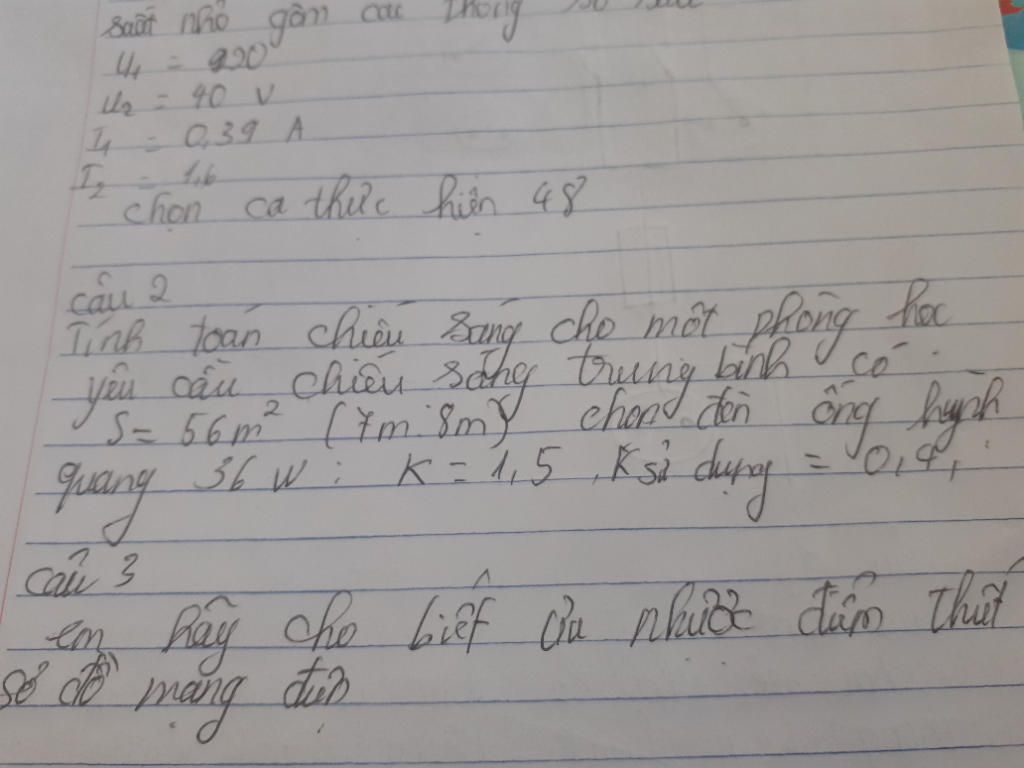 suất nhỏ gồm các thông số sau
U₁ = 220
U₂ = 40 V
I₁ = 0,39 A
I₂ = 1,6
chọn ca thực hiện 48
câu 2
Tính toán chiếu sáng cho một phòng học
yêu cầu chiếu sáng trung bình có
S = 56m² (7m.8m) chọn đèn ống huỳnh
quang 36 W : K = 1,5 , K sử dụng = 0,4,
câu 3
em hãy cho biết ưu nhược điểm thiết
sơ đồ mạng điện